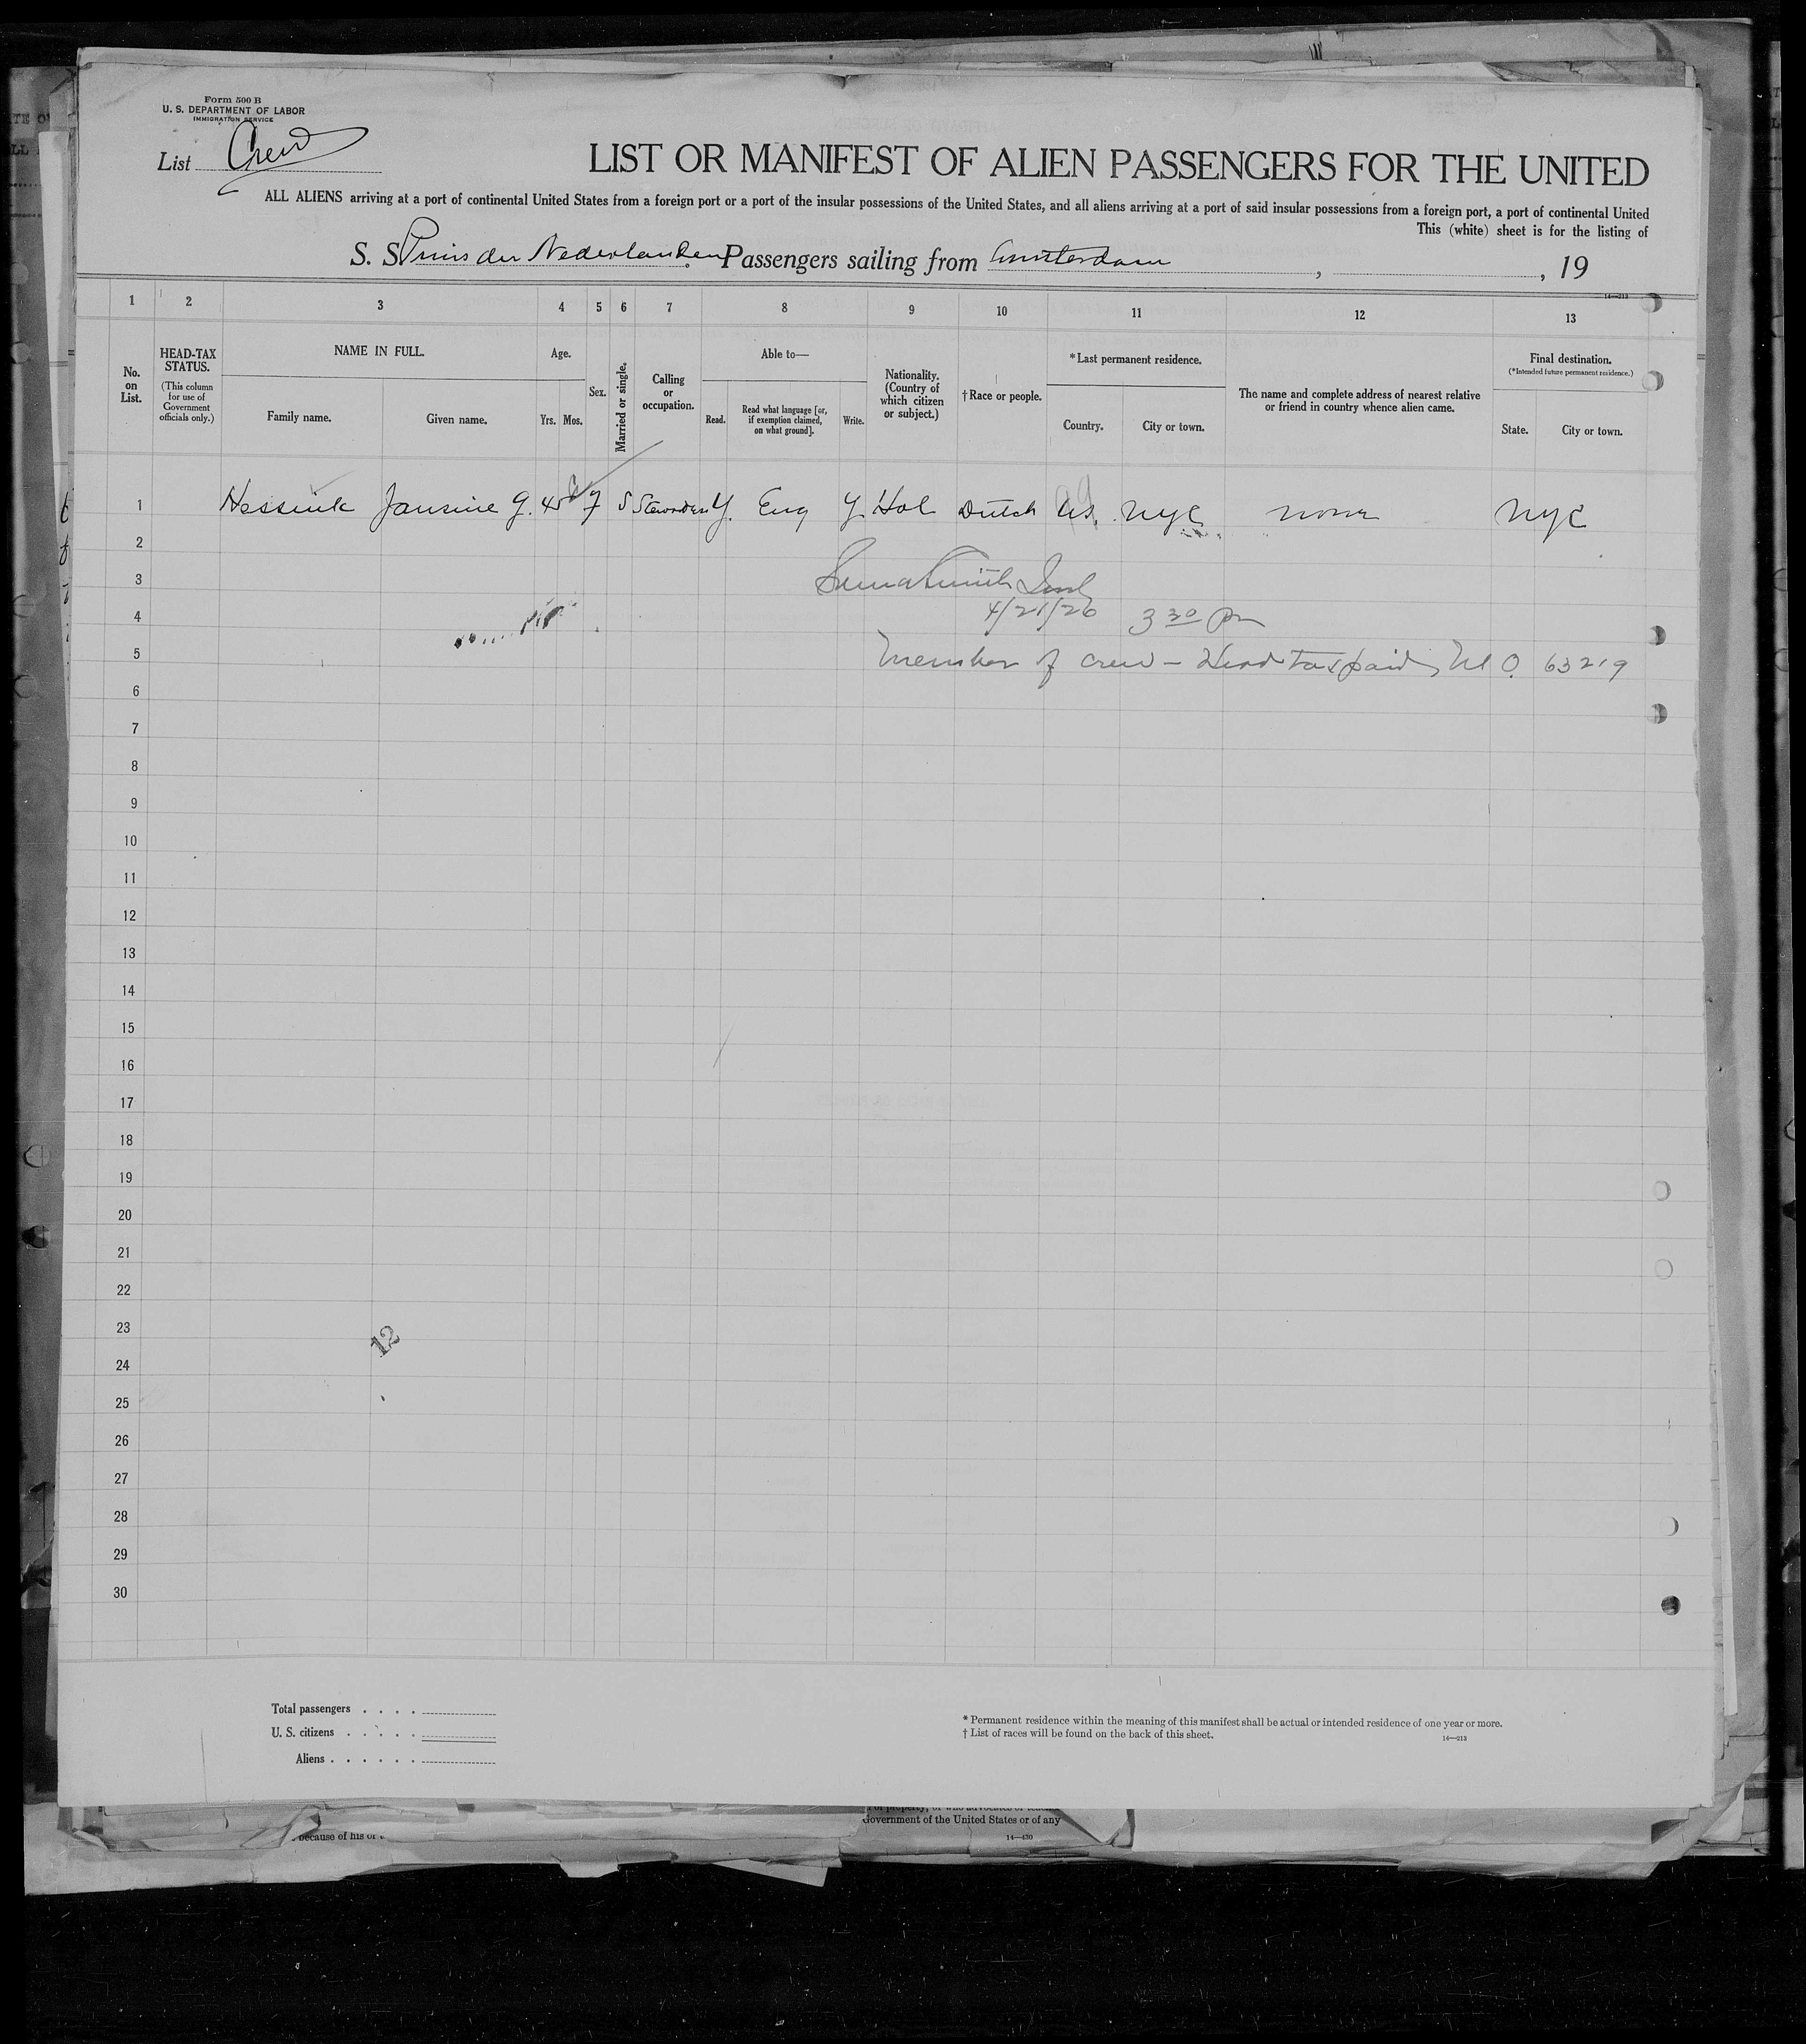 Form 500 B
U. S. DEPARTMENT OF LABOR
IMMIGRATION SERVICE
List Crew
LIST OR MANIFEST OF ALIEN PASSENGERS FOR THE UNITED
ALL ALIENS arriving at a port of continental United States from a foreign port or a port of the insular possessions of the United States, and all aliens arriving at a port of said insular possessions from a foreign port, a port of continental United
This (white) sheet is for the listing of
S. S. Prins der Nederlanden Passengers sailing from Amsterdam , , 19
14—213
1 2 3 4 5 6 7 8 9 10 11 12 13
No. on List.
HEAD-TAX STATUS.
(This column for use of Government officials only.)
NAME IN FULL.
Family name. Given name.
Age.
Yrs. Mos.
Sex.
Married or single.
Calling or occupation.
Able to—
Read. Read what language [or, if exemption claimed, on what ground]. Write.
Nationality. (Country of which citizen or subject.)
† Race or people.
* Last permanent residence.
Country. City or town.
The name and complete address of nearest relative or friend in country whence alien came.
Final destination.
(*Intended future permanent residence.)
State. City or town.
1 Hessink Jansine G. 45 f S Stewardess Y. Eng Y. Hol Dutch US. NYC none NYC
2
3
4 4/21/26 3 30 pm
5 Member of crew — Head tax paid, M O. 63219
6
7
8
9
10
11
12
13
14
15
16
17
18
19
20
21
22
23
12
24
25
26
27
28
29
30
Total passengers . . . .
U. S. citizens . . . . .
Aliens . . . . . .
* Permanent residence within the meaning of this manifest shall be actual or intended residence of one year or more.
† List of races will be found on the back of this sheet.
14—213
because of his or
Government of the United States or of any
14—430